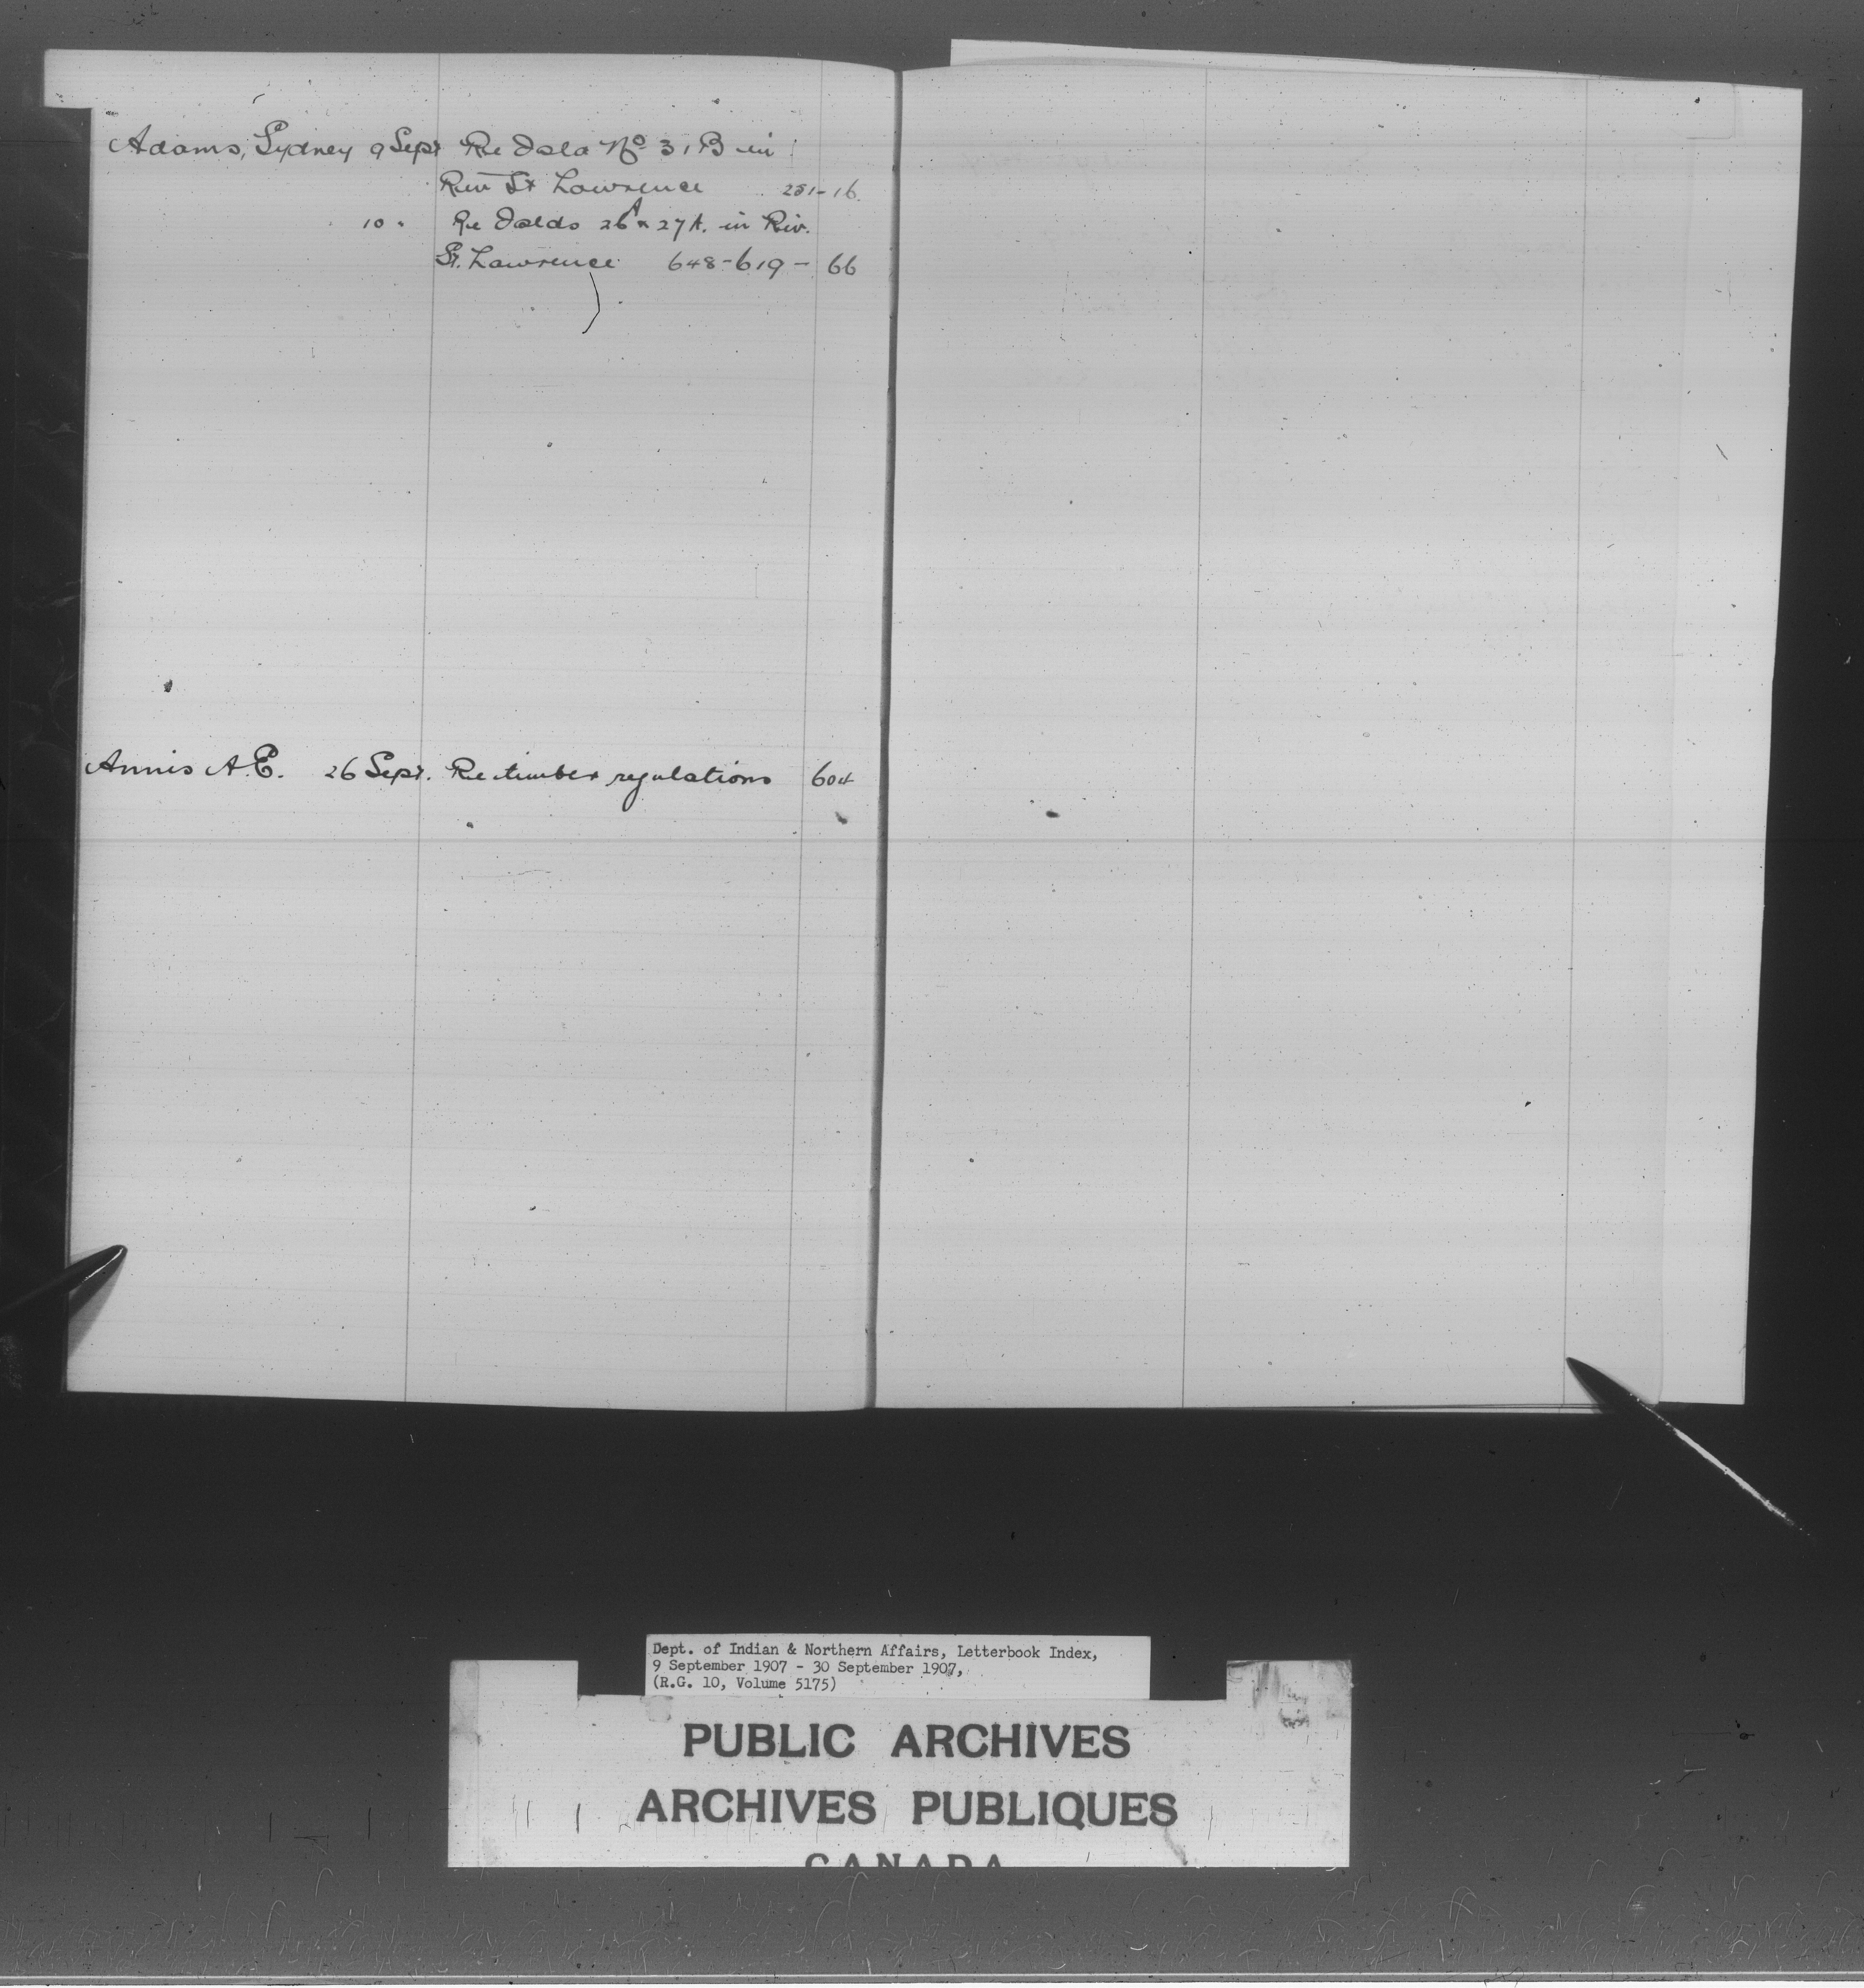 Adams, Sydney 9 Sept Re Isld No 31B in
Riv St Lawrence 251-16
10 " Re Islds 26A & 27A. in Riv.
St. Lawrence 648-619-66
Annis A.E. 26 Sept. Re timber regulations 604
Dept. of Indian & Northern Affairs, Letterbook Index,
9 September 1907 - 30 September 1907,
(R.G. 10, Volume 5175)
PUBLIC ARCHIVES
ARCHIVES PUBLIQUES
CANADA